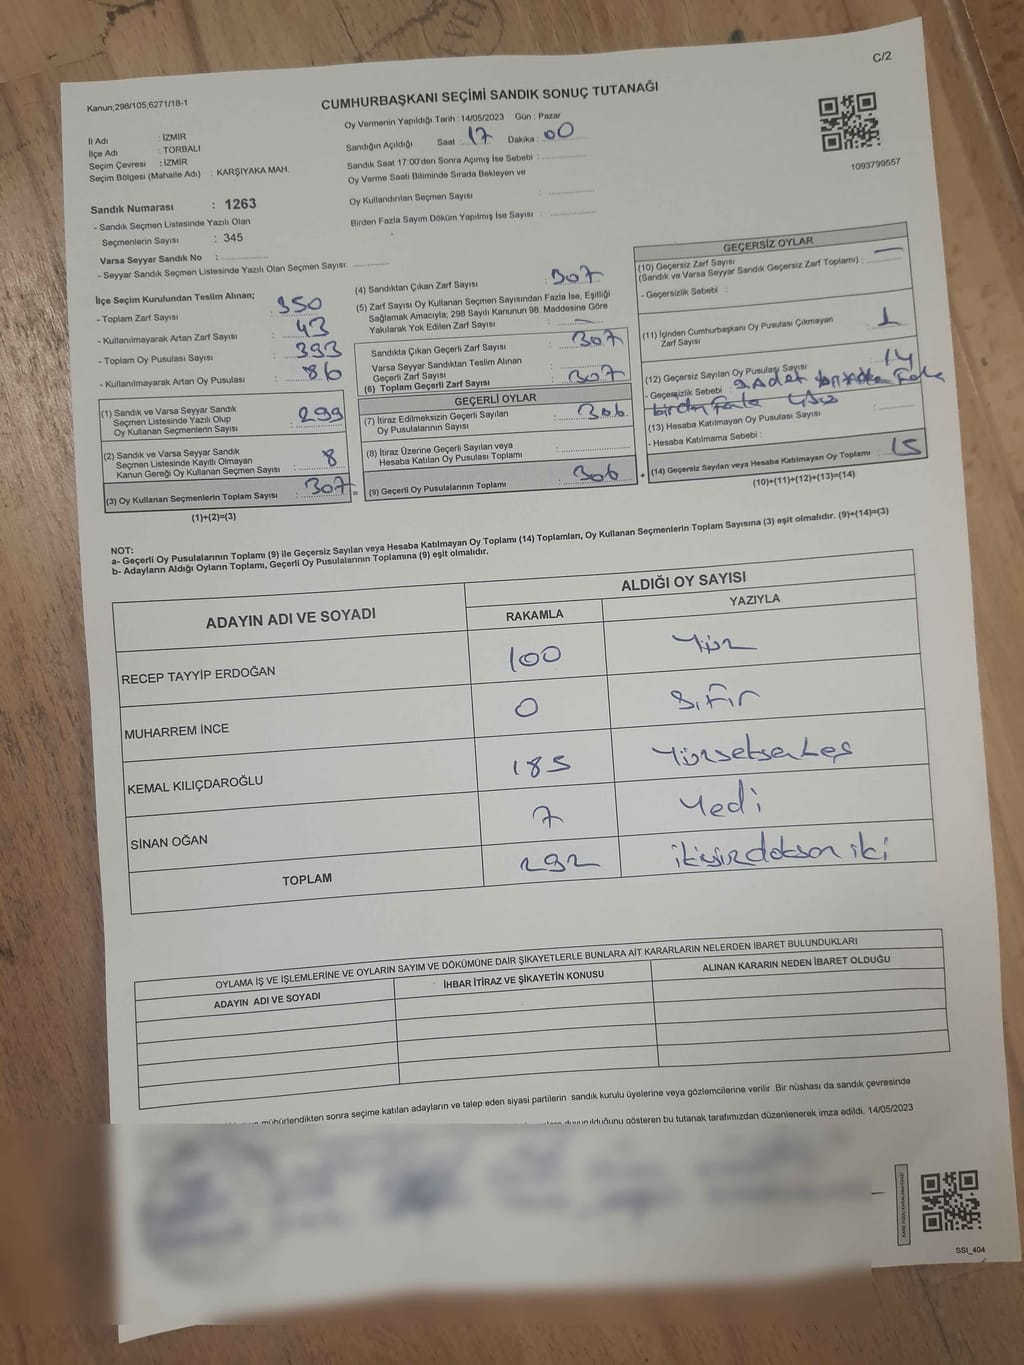 C/2
Kanun;298/105;6271/18-1
CUMHURBAŞKANI SEÇİMİ SANDIK SONUÇ TUTANAĞI
İl Adı : İZMİR
İlçe Adı : TORBALI
Seçim Çevresi : İZMİR
Seçim Bölgesi (Mahalle Adı) : KARŞIYAKA MAH.
Sandık Numarası : 1263
- Sandık Seçmen Listesinde Yazılı Olan
Seçmenlerin Sayısı : 345
Varsa Seyyar Sandık No :
- Seyyar Sandık Seçmen Listesinde Yazılı Olan Seçmen Sayısı:
Oy Vermenin Yapıldığı Tarih : 14/05/2023 Gün : Pazar
Sandığın Açıldığı Saat : 17 Dakika : 00
Sandık Saat 17:00'den Sonra Açımış İse Sebebi :
Oy Verme Saati Bitiminde Sırada Bekleyen ve
Oy Kullandırılan Seçmen Sayısı :
Birden Fazla Sayım Döküm Yapılmış İse Sayısı :
1093799557
İlçe Seçim Kurulundan Teslim Alınan;
- Toplam Zarf Sayısı : 350
- Kullanılmayarak Artan Zarf Sayısı : 43
- Toplam Oy Pusulası Sayısı : 393
- Kullanılmayarak Artan Oy Pusulası : 86
(1) Sandık ve Varsa Seyyar Sandık
Seçmen Listesinde Yazılı Olup
Oy Kullanan Seçmenlerin Sayısı : 299
(2) Sandık ve Varsa Seyyar Sandık
Seçmen Listesinde Kayıtlı Olmayan
Kanun Gereği Oy Kullanan Seçmen Sayısı : 8
(3) Oy Kullanan Seçmenlerin Toplam Sayısı : 307 =
(1)+(2)=(3)
(4) Sandıktan Çıkan Zarf Sayısı : 307
(5) Zarf Sayısı Oy Kullanan Seçmen Sayısından Fazla İse, Eşitliği
Sağlamak Amacıyla; 298 Sayılı Kanunun 98. Maddesine Göre
Yakılarak Yok Edilen Zarf Sayısı : —
Sandıkta Çıkan Geçerli Zarf Sayısı : 307
Varsa Seyyar Sandıktan Teslim Alınan
Geçerli Zarf Sayısı :
(6) Toplam Geçerli Zarf Sayısı : 307
GEÇERLİ OYLAR
(7) İtiraz Edilmeksizin Geçerli Sayılan
Oy Pusulalarının Sayısı : 306
(8) İtiraz Üzerine Geçerli Sayılan veya
Hesaba Katılan Oy Pusulası Toplamı :
(9) Geçerli Oy Pusulalarının Toplamı : 306 +
GEÇERSİZ OYLAR
(10) Geçersiz Zarf Sayısı
(Sandık ve Varsa Seyyar Sandık Geçersiz Zarf Toplamı) : —
- Geçersizlik Sebebi :
(11) İçinden Cumhurbaşkanı Oy Pusulası Çıkmayan
Zarf Sayısı : 1
(12) Geçersiz Sayılan Oy Pusulası Sayısı : 14
- Geçersizlik Sebebi : 9 Adet
birden Fazla
(13) Hesaba Katılmayan Oy Pusulası Sayısı :
- Hesaba Katılmama Sebebi :
(14) Geçersiz Sayılan veya Hesaba Katılmayan Oy Toplamı : 15
(10)+(11)+(12)+(13)=(14)
NOT:
a- Geçerli Oy Pusulalarının Toplamı (9) ile Geçersiz Sayılan veya Hesaba Katılmayan Oy Toplamı (14) Toplamları, Oy Kullanan Seçmenlerin Toplam Sayısına (3) eşit olmalıdır. (9)+(14)=(3)
b- Adayların Aldığı Oyların Toplamı, Geçerli Oy Pusulalarının Toplamına (9) eşit olmalıdır.
ADAYIN ADI VE SOYADI
ALDIĞI OY SAYISI
RAKAMLA YAZIYLA
RECEP TAYYİP ERDOĞAN 100 Yüz
MUHARREM İNCE 0 Sıfır
KEMAL KILIÇDAROĞLU 185 Yüzseksenbeş
SİNAN OĞAN 7 Yedi
TOPLAM 292 ikiyüzdoksan iki
OYLAMA İŞ VE İŞLEMLERİNE VE OYLARIN SAYIM VE DÖKÜMÜNE DAİR ŞİKAYETLERLE BUNLARA AİT KARARLARIN NELERDEN İBARET BULUNDUKLARI
ADAYIN ADI VE SOYADI İHBAR İTİRAZ VE ŞİKAYETİN KONUSU ALINAN KARARIN NEDEN İBARET OLDUĞU
mühürlendikten sonra seçime katılan adayların ve talep eden siyasi partilerin sandık kurulu üyelerine veya gözlemcilerine verilir .Bir nüshası da sandık çevresinde
duyurulduğunu gösteren bu tutanak tarafımızdan düzenlenerek imza edildi. 14/05/2023
SSI_404